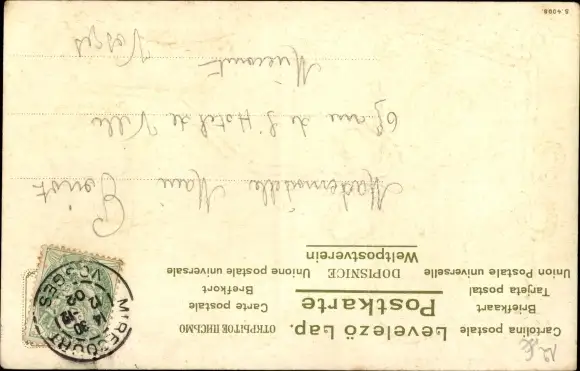 Cartolina postale
Briefkaart
Tarjeta postal
Union Postale universelle
Levelező Lap.
Postkarte
DOPISNICE
Weltpostverein
ОТКРЫТОЕ ПИСЬМО
Carte postale
Brefkort
Unione postale universale
MIRECOURT
14
12
02
VOSGES
Mademoiselle Marie
rue de l'Hotel de Ville
Mirecourt
Vosges